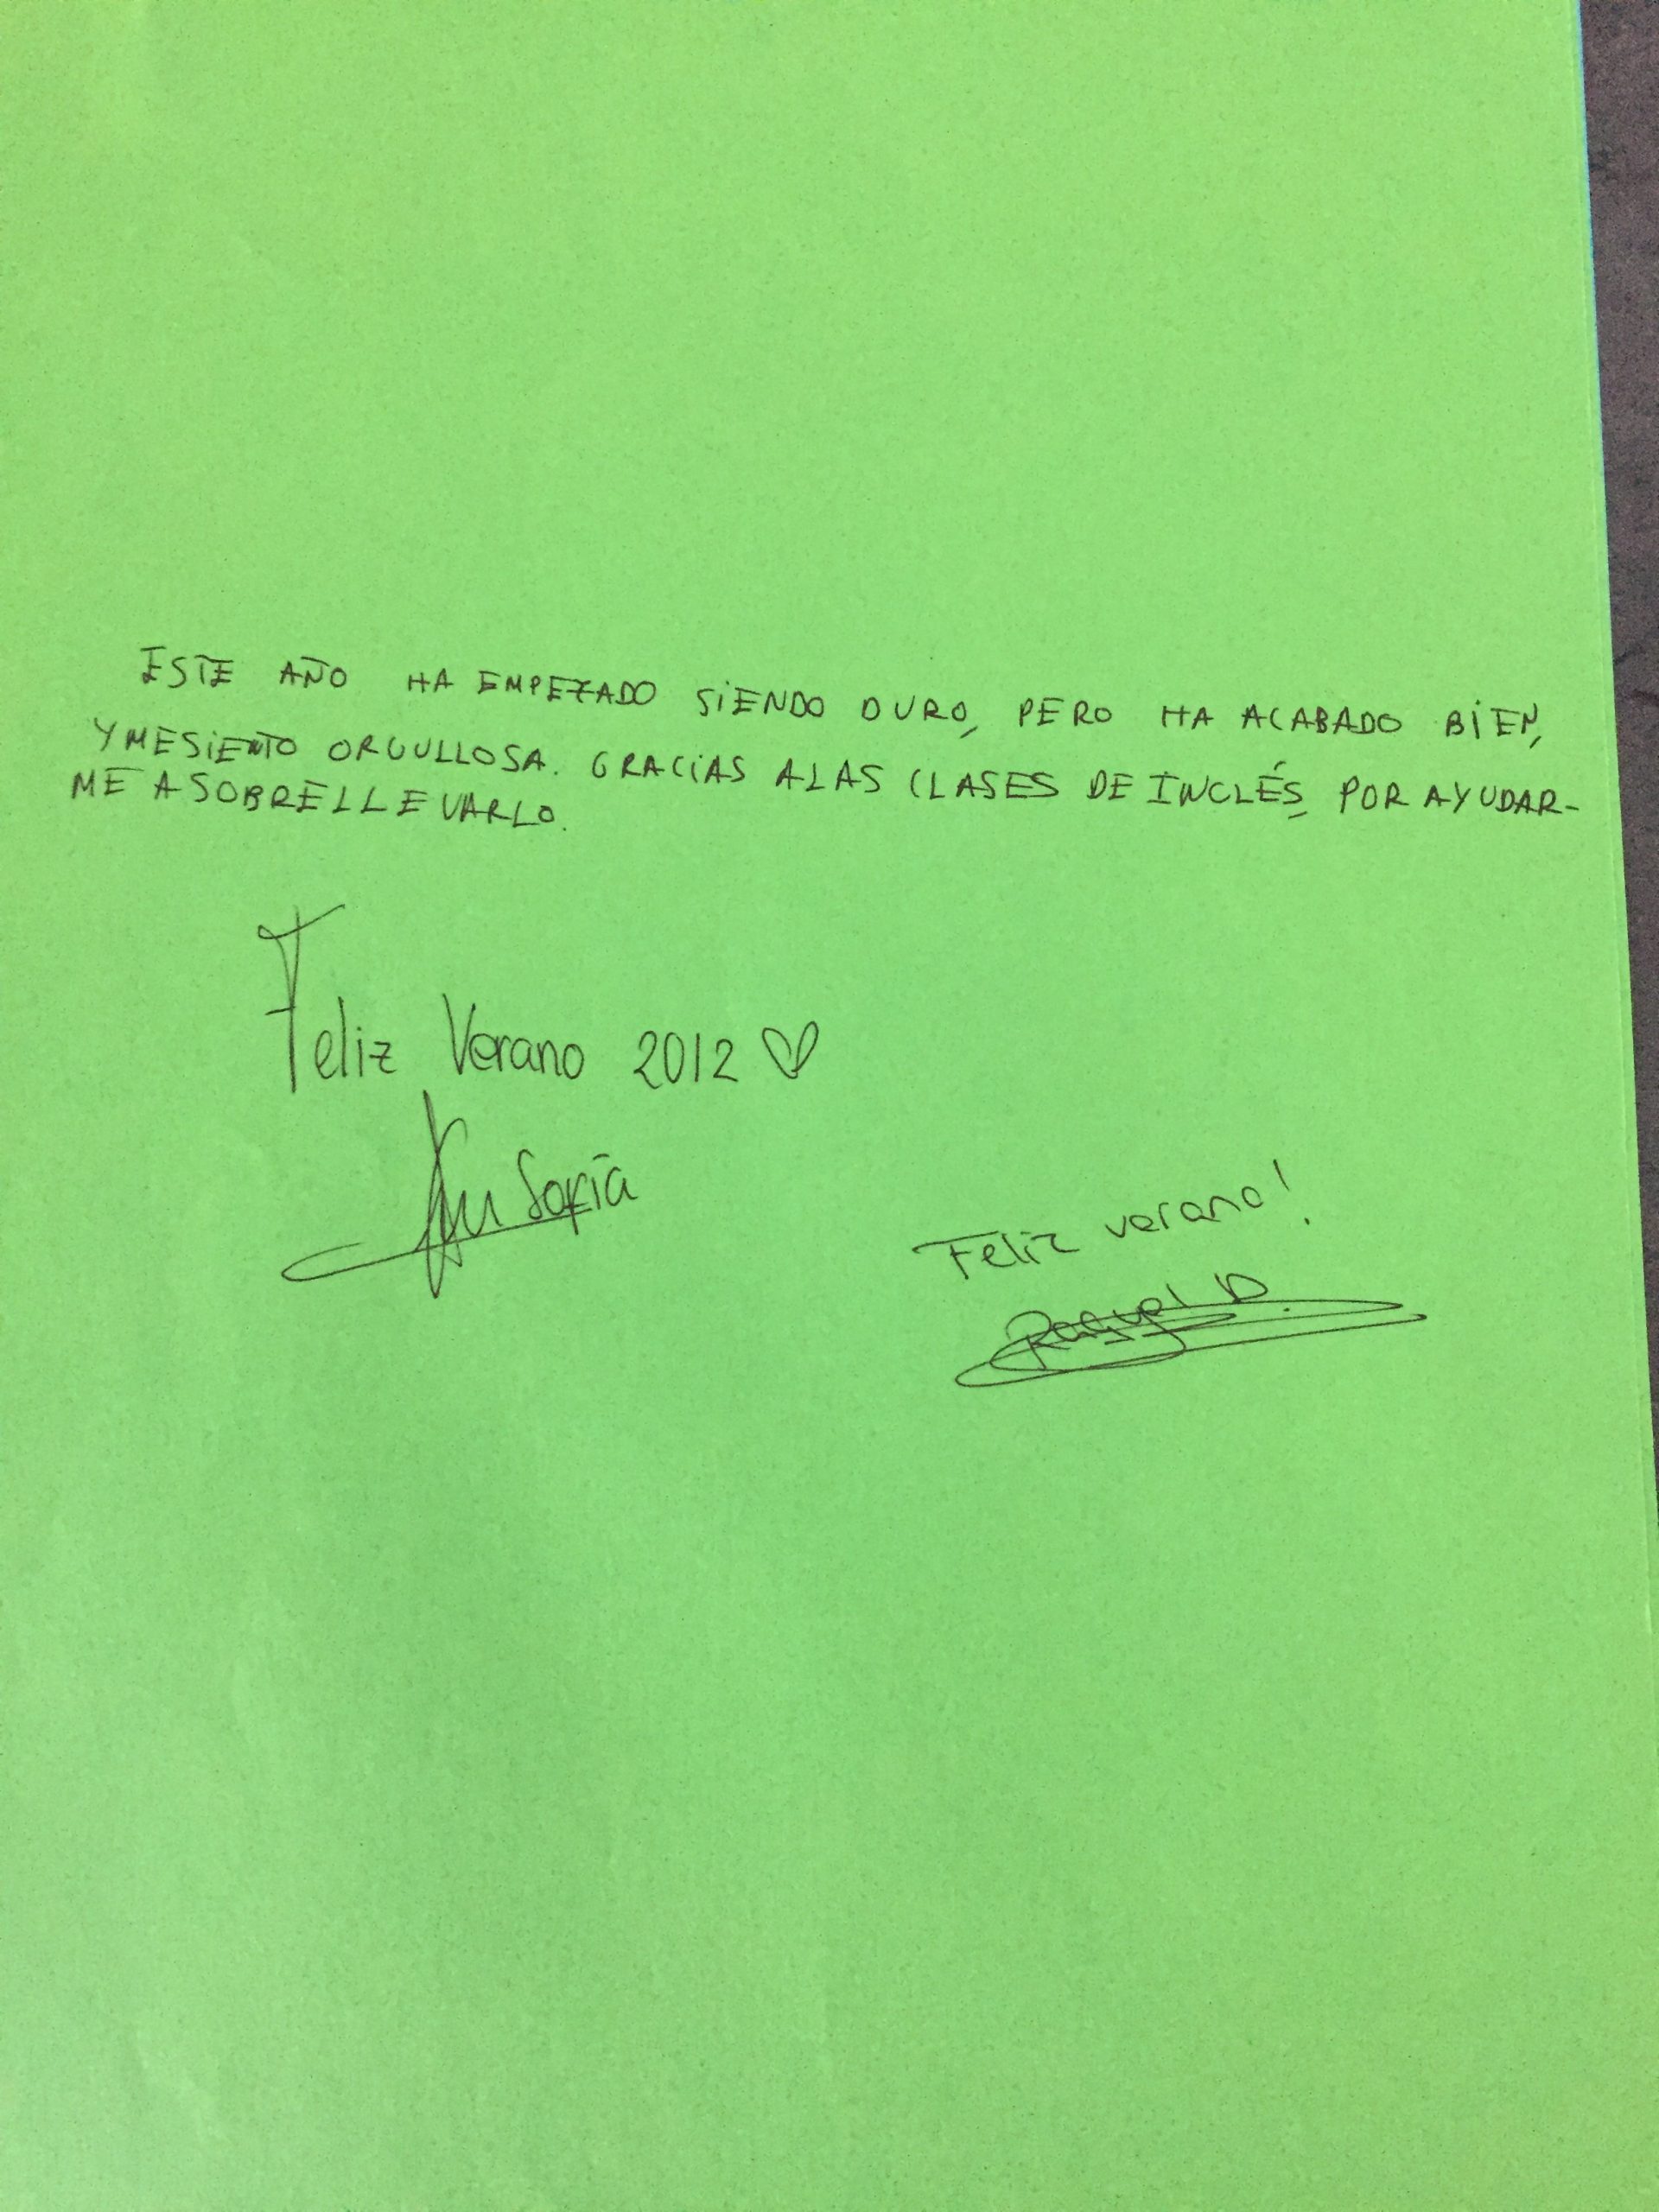 ESTE AÑO HA EMPEZADO SIENDO DURO, PERO HA ACABADO BIEN,
Y ME SIENTO ORGULLOSA. GRACIAS A LAS CLASES DE INGLÉS, POR AYUDAR-
ME A SOBRELLEVARLO.
Feliz Verano 2012 ♡
Sofía
Feliz verano!
Raquel D.